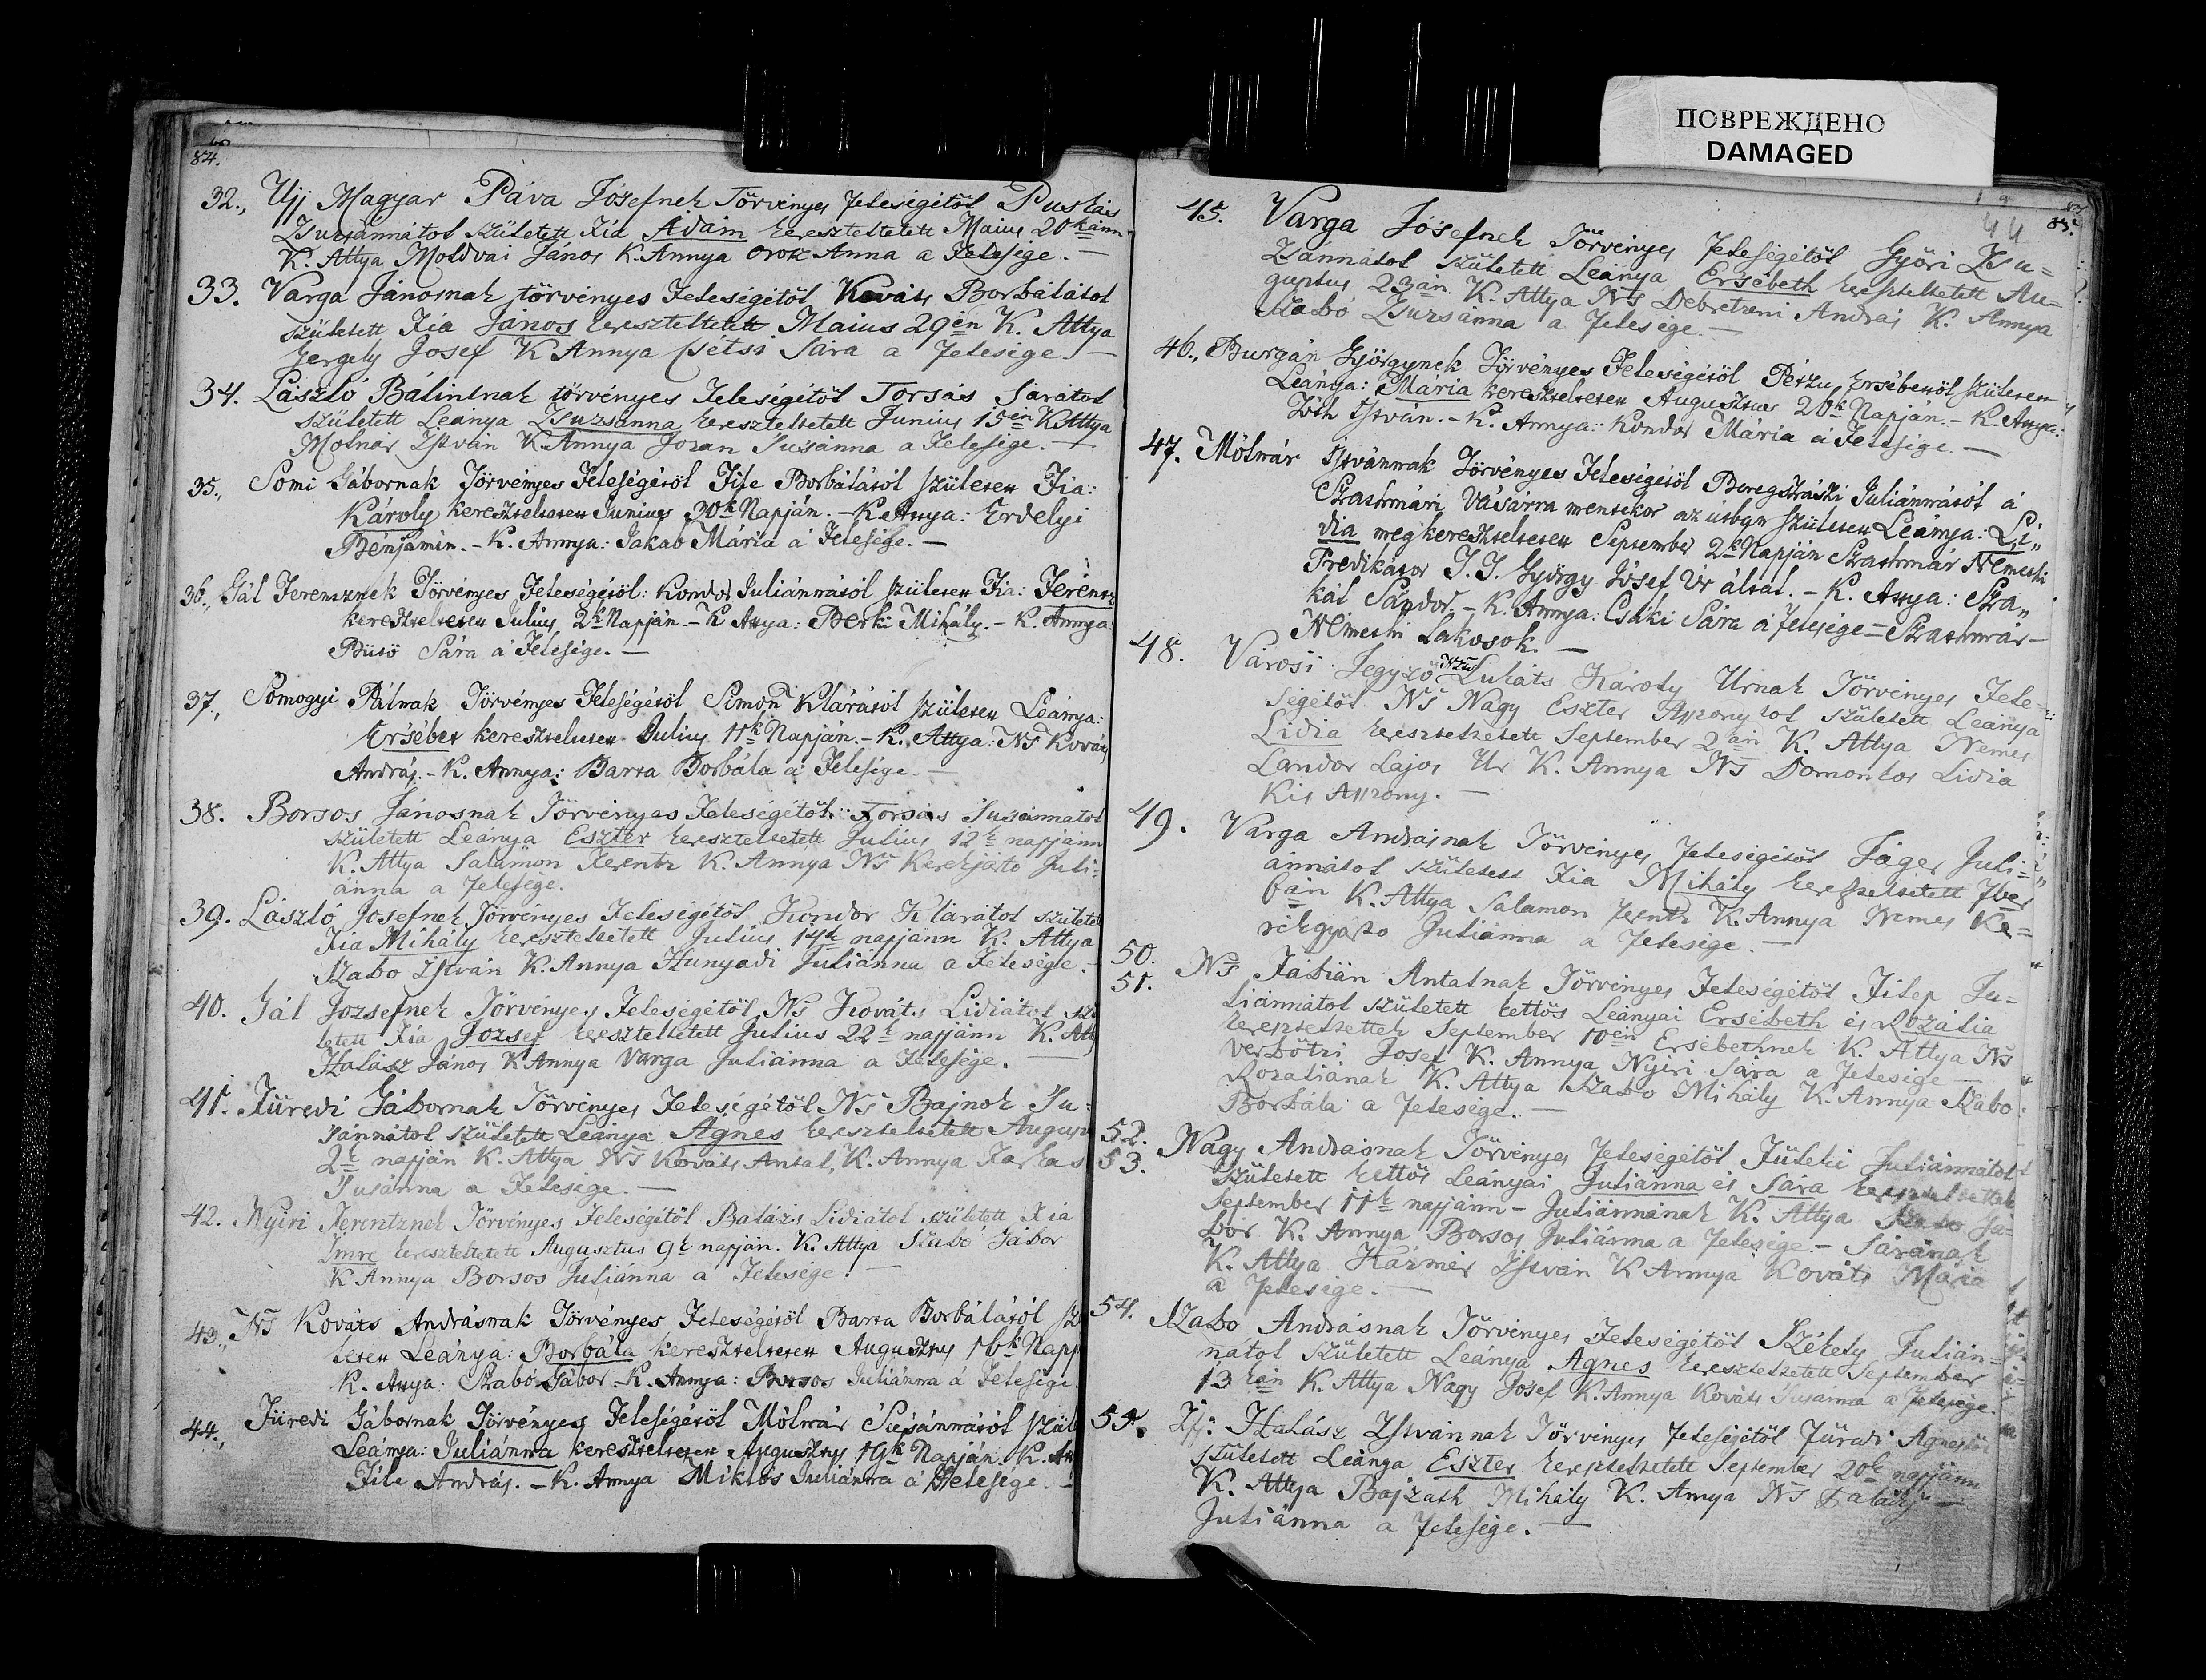 84.
32., Ujj Magyar Páva Jósefnek Törvényes feleségitöl Puskás
Zsuzsánnátol született Fia Ádám kereszteltetett Maius 20kánn
K. Attya Moldvai János K. Annya Orok Anna a Felesége. —
33. Varga Jánosnak törvényes Feleségétöl Kováts Borbálátol
született Fia János kereszteltetett Maius 29én K. Attya
Gergely Josef K Annya Csétsi Sára a Felesége —
34. László Bálintnak törvényes Feleségétöl Torsás Sárátol
született Leánya Zsuzsánna kereszteltetett Junius 15én K Attya
Molnár István K Annya Jozan Susánna a Felesége. —
35., Somi Gábornak Törvényes Feleségétöl File Borbálátol született Fia:
Károly kereszteltetett Junius 30k Napján. – K Attya: Erdelyi
Bénjamin. – K. Annya: Jakab Mária á Felesége. —
36., Gál Ferentznek Törvényes Feleségétöl: Kondor Juliánnától született Fia: Ferentz
kereszteltetett Julius 2k Napján. – K Attya: Berki Mihály. – K. Annya:
Bütö Sára á Felesége. —
37., Somogyi Pálnak Törvényes Feleségétöl Simon Klárától született Leánya:
Ersébet kereszteltetett Julius 11k Napján. – K. Attya: Ns Kováts
András. – K. Annya: Barta Borbála á Felesége. —
38. Borsos Jánosnak Törvényes Feleségétöl: Torsás Susánnatol
született Leánya Eszter kereszteltetett Julius 12k napjánn
K. Attya Salamon Ferentz K. Annya Ns Kerekjarto Juli-
ánna a Felesége.
39. László Josefnek Törvényes Feleségétöl Kondor Klárátol született
Fia Mihály kereszteltetett Julius 14k napjánn K. Attya
Szabo István K. Annya Hunyadi Juliánna a Felesége. –
40. Gál Jozsefnek Törvényes Feleségétöl Ns Kováts Lidiátol szü
letett Fia Jozsef kereszteltetett Julius 22k napjánn K. Att
Halász János K Annya Varga Juliánna a Felesége. —
41. Füredi Gábornak Törvényes Feleségétöl Ns Bajnok Su-
sánnátol született Leánya Ágnes kereszteltetett August
2k napján K. Attya Ns Kováts Antal, K. Annya Farkas
Susánna a Felesége. —
42. Nyiri Ferentznek Törvényes Feleségétöl Balázs Lidiátol született Fia
Imre kereszteltetett Augusztus 9k napján. K. Attya Szabó Gábor
K Annya Borsos Juliánna a Felesége. —
43., Ns Kováts Andrásnak Törvényes Feleségétöl Barta Borbálától szü
letett Leánya: Borbála kereszteltetett Augusztus 16k Napj
K. Attya: Szabó Gábor – K. Annya: Borsos Juliánna á Felesége
44., Füredi Gábornak Törvényes Feleségétöl Mólnár Susánnától szül
Leánya: Juliánna kereszteltetett Augusztus 19k Napján. K. At
File András. – K. Annya Miklós Juliánna á Felesége. –
ПОВРЕЖДЕНО
DAMAGED
44
85.
45. Varga Jósefnek Törvényes Feleségétöl Györi Zsu-
zsánnátol született Leánya Ersébeth kereszteltetett Au-
gustus 23án K. Attya Ns Debretzeni András K. Annya
Szabó Zsuzsánna a Felesége. —
46., Burgán Györgynek Törvényes Feleségétöl Pétzu Ersébettöl született
Leánya: Mária kereszteltetett Augusztus 20k Napján. – K. Attya:
Tóth István. – K. Annya: Kondor Mária á Felesége. —
47. Mólnár Istvánnak Törvényes Feleségétöl Beregszászi Juliánnától á
Szathmári Vásárra mentekor az útban született Leánya: Li„
dia megkereszteltetett September 2k Napján Szathmár Németi
Predikátor T. T. György Jósef Úr által. – K. Attya: Sza„
kál Sándor. – K. Annya: Csáki Sára á Felesége – Szathmár-
Németi Lakosok. —
48. Városi Jegyzö Nztes Lukáts Károly Urnak Törvényes Fele-
ségétöl Ns Nagy Eszter Asszonytol született Leánya
Lidia kereszteltetett September 2án K. Attya Nemes
Sandor Lajos Ur K. Annya Ns Domonkos Lidia
Kis Asszony. —
49. Varga Andrásnak Törvényes Feleségétöl Jáger Juli-
ánnátol született Fia Mihály kereszteltetett 7ber
6án K. Attya Salamon Ferentz K. Annya Nemes Ke-
rékgyarto Juliánna a Felesége. —
50.
51. Ns Fábián Antalnak Törvényes Feleségétöl Filep Ju-
liánnátol született kettös Leányai Ersébeth és Rozália
kereszteltettek September 10én Ersébethnek K. Attya Ns
Verbötzi Josef K. Annya Nyiri Sára a Felesége —
Rozaliának K. Attya Szabo Mihály K. Annya Szabo
Borbála a Felesége. —
52.
53. Nagy Andrásnak Törvényes Feleségétöl Füleki Juliánnátol
született kettös Leányai Juliánna és Sára kereszteltettek
September 11k napjánn – Juliánnának K. Attya Szabo Gá-
bor K. Annya Borsos Juliánna a Felesége – Sáránák
K. Attya Kázmér István K Annya Kováts Mária
a Felesége. —
54. Szabo Andrásnak Törvényes Feleségétöl Székely Julián-
nátol született Leánya Ágnes kereszteltetett September
13kán K. Attya Nagy Josef K. Annya Kováts Susánna a Felesége.
55. Ifj: Halász Istvánnak Törvényes Feleségétöl Füredi Agnestöl
született Leánya Eszter kereszteltetett September 20k napjánn
K. Attya Bajzáth Mihály K. Annya Ns Balásy —
Juliánna a Felesége. —